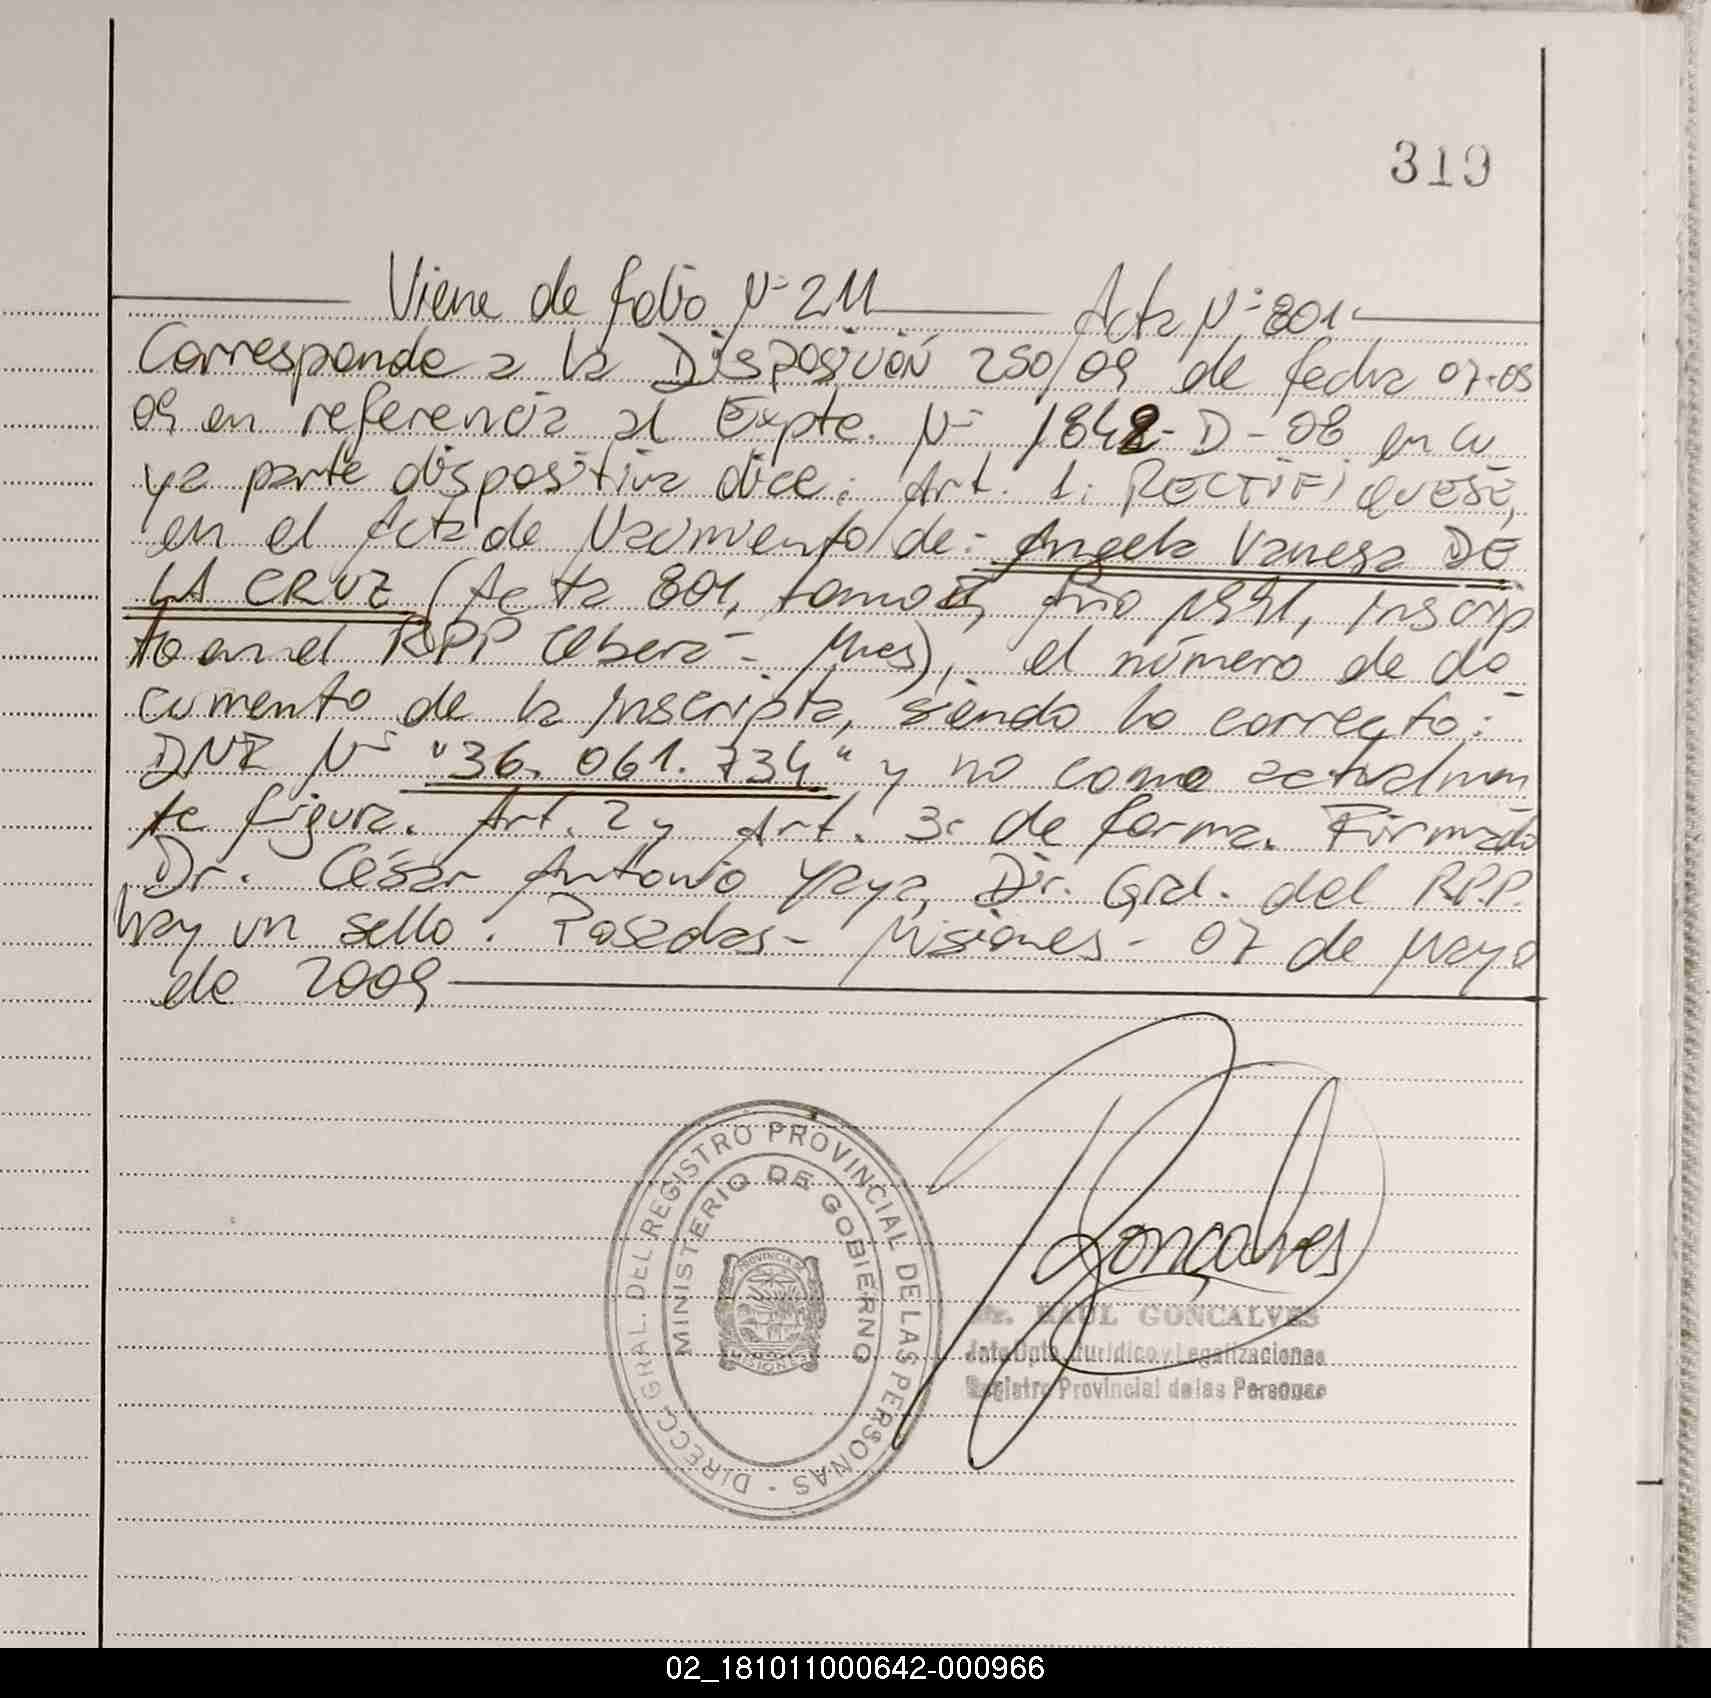 319
Viene de folio Nº 211 Acta Nº 801
Corresponde a la Disposición 250/09 de fecha 07-05
09 en referencia al Expte. Nº 1842-D-08 en cu
ya parte dispositiva dice: Art. 1: RECTIFIQUESE,
en el Acta de Nacimiento de: Angela Vanesa DE
LA CRUZ (Acta 801, tomo Año 1991, Inscrip
to en el RPP Oberá - Mnes), el número de do
cumento de la Inscripta, siendo lo correcto:
DNI Nº "36.061.734" y no como actualmen
te figura. Art. 2 y Art. 3: de forma. Firmado
Dr. César Antonio Yaya, Dir. Gral. del R.P.P.
hay un sello. Posadas - Misiones - 07 de Mayo
de 2009
DIRECC. GRAL. DEL REGISTRO PROVINCIAL DE LAS PERSONAS
MINISTERIO DE GOBIERNO
PROVINCIA DE
MISIONES
Gonçalves
Dr. RAUL GONCALVES
Jefe Dpto. Jurídico y Legalizaciones
Registro Provincial de las Personas
02_181011000642-000966